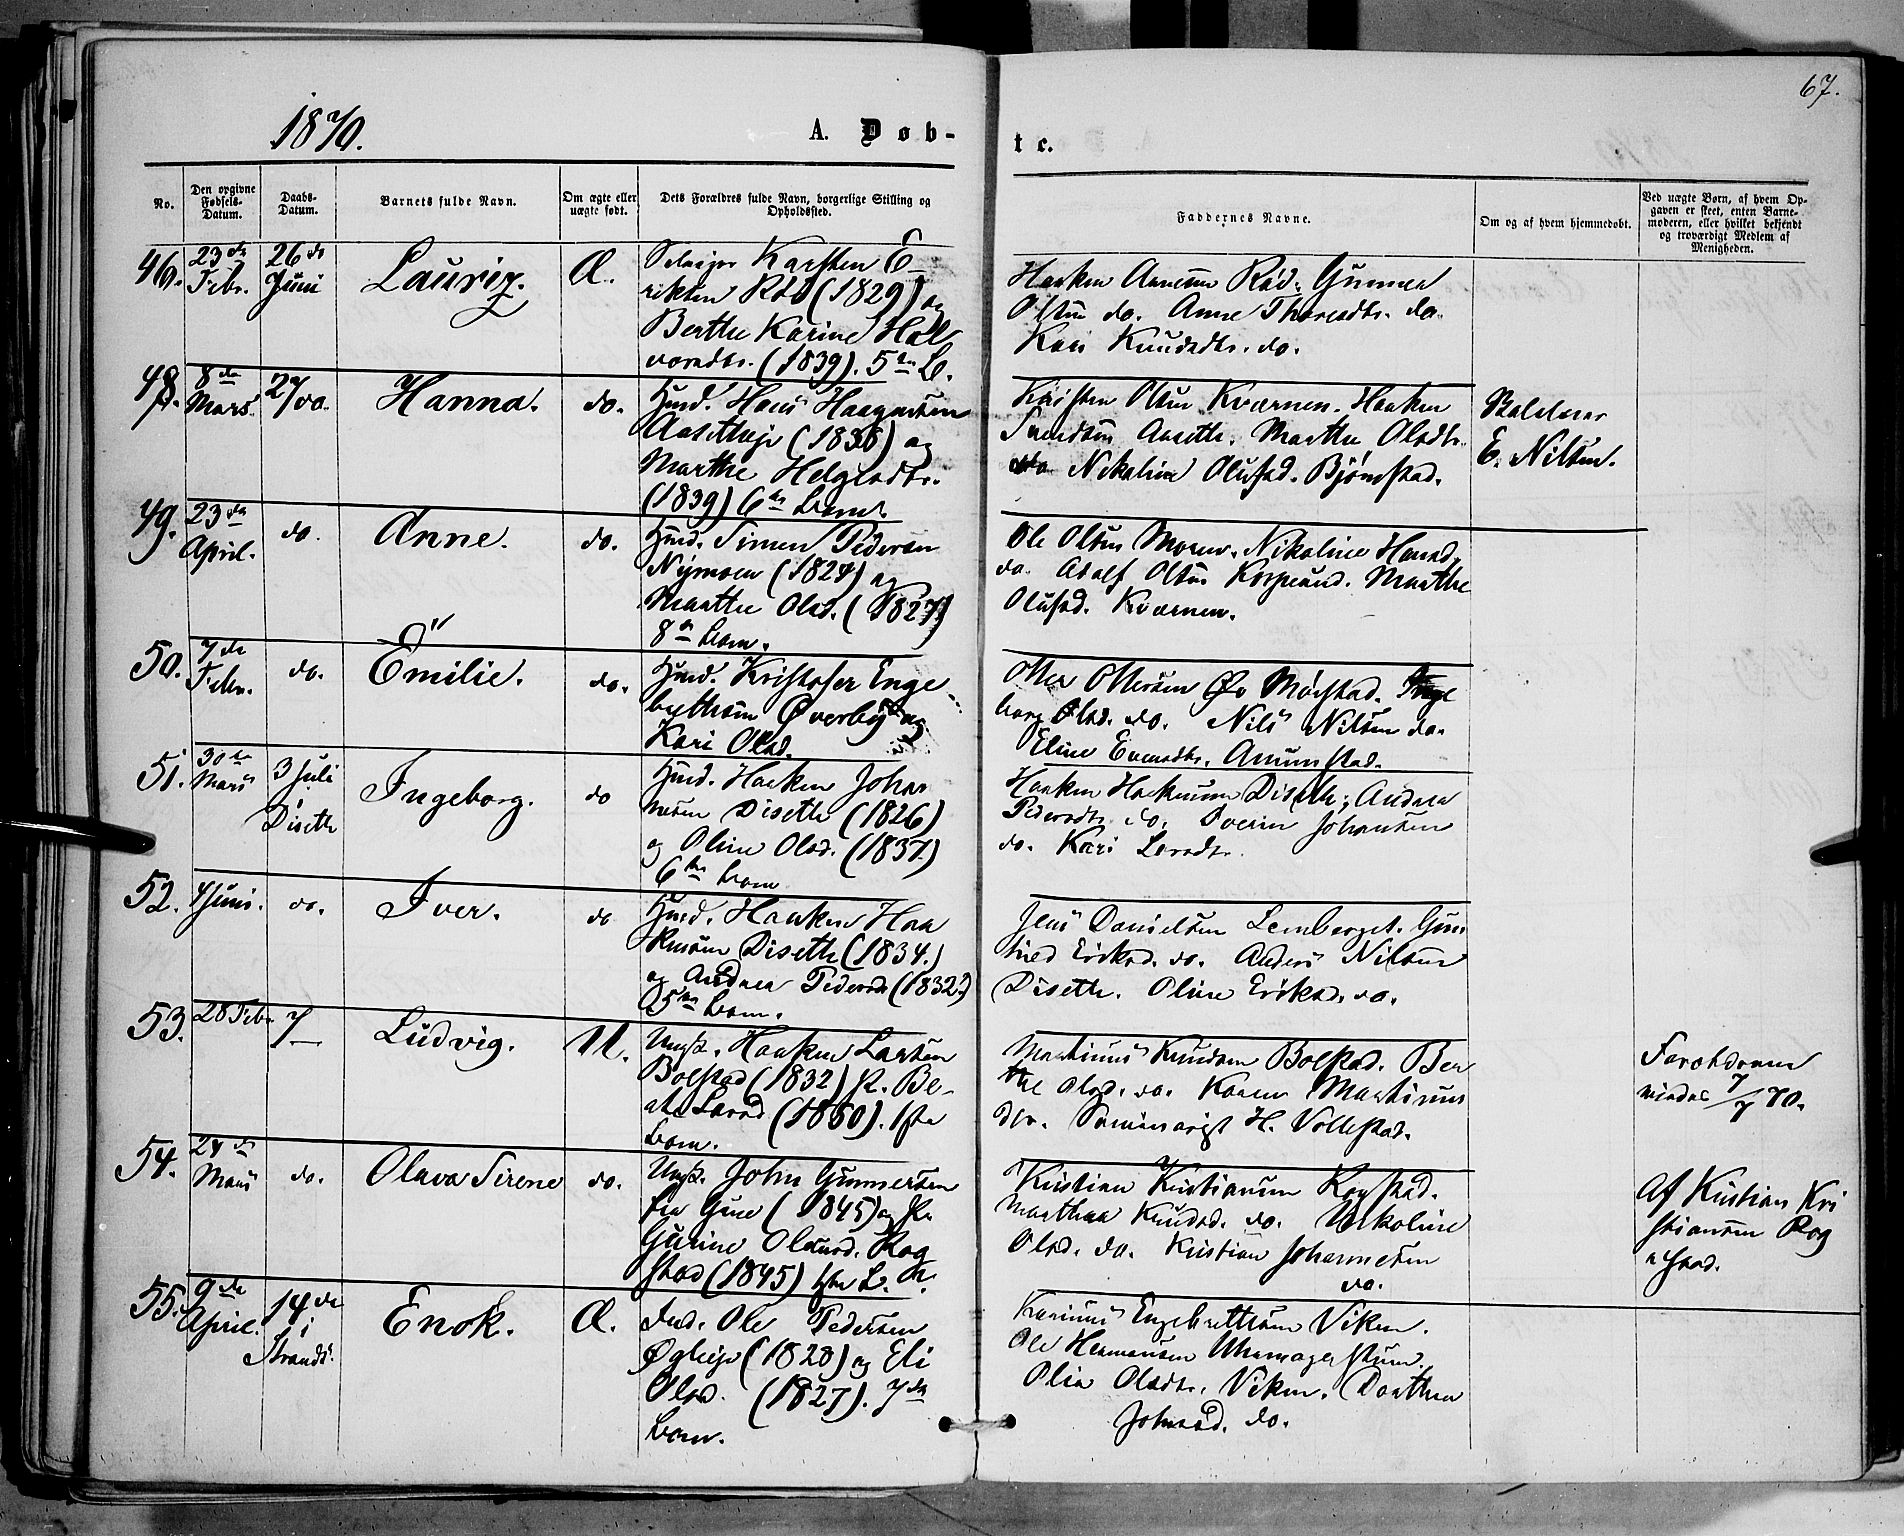 67.
1870.
A. Døb-
te.
No.
Den opgivne Fødsels-Datum.
Daabs-Datum.
Barnets fulde Navn.
Om ægte eller uægte født.
Dets Forældres fulde Navn, borgerlige Stilling og Opholdssted.
Faddernes Navne.
Om og af hvem hjemmedøbt.
Ved uægte Børn, af hvem Op-
gaven er skeet, enten Barne-
moderen, eller hvilket bekjendt
og troværdigt Medlem af
Menigheden.
46. 23de Febr. 26de Juni Lauriz. Æ.
Selveier Karsten E-
riksen Rød (1829) og
Berthe Karine Hal
vorsdtr. (1839). 5te B.
Haaken Rød. Gunner
Olsen do. Anne Thoresdtr. do
Kari Knudsdtr. do.
48. 8de Mars. 27 do. Hanna. do.
Husd. Hans Haagensen
Aasetheje (1838) og
Marthe Helgesdtr.
(1839) 6te Barn.
Karsten Olsen Kværnen. Haaken
Aaseth. Marthe Olsdtr.
do Nikoline Olufsd. Bjørnstad.
E. Nilsen.
49. 23de April. do. Anne. do.
Husd. Simen Pedersen
Nymoen (1824) og
Marthe Olsd. (1827)
8de Barn.
Ole Olsen Moen. Nikoline Hansd.
do. Adolf Olsen Korpesund. Marthe
Olufsd. Kværnen.
50. 7de Febr. do. Emilie. do.
Husd. Kristofer Enge
brethsen Øverby og
Kari Olsd.
Otter Ottersen Øv Mørstad. Inge
borg Olsd. do. Nils Nilsen do.
Eline Evensdtr. Amunstad.
51. 30te Mars 3 Juli i Diseth Ingeborg. do
Husd. Haaken Johan
nesen Diseth (1826)
og Oline Olsd. (1837.)
6te Barn
Haaken Haakensen Diseth; Andrea
Pedersdtr. do. Johansen
do. Kari Larsdtr.
52. 4 Juni. do. Iver. do
Husd. Haaken Haa
kensen Diseth (1834.)
og Andrea Pedersd. (1832.)
5te Barn.
Jens Danielsen Lemberget. Gun
hild Eriksd. do. Anders Nilsen
Diseth. Oline Eriksd. do.
53. 28 Febr. 7 — Ludvig. U.
Ungk. Haaken Larsen
Bolstad (1832) P. Be-
ate Larsd (1860). 1ste
Barn.
Martinus Knudsen Bolstad. Ber
the Olsd. do. Karen Martinus
dtr. Seminarist H. Vollestad.
7/7 70.
54. 24de Mars do. Olava Sirene do.
Ungk. John Gunnersen
fra Gue (1845) og P.
Gurine Olsd. Rog
stad (1845) 1ste B.
Kristian Kristiansen Rogstad.
Marthea Knudsd. do. Nikoline
Olsd. do. Kristian Johannesen
do.
Af Kristian Kri
stiansen Rog
stad.
55. 9de April. 14de i Strands. Enok. Æ.
Ind. Ole Pedersen
Øgleje (1828) og Eli
Olsd. (1827). 7de
Barn.
Karinus Engebrettsen Viken.
Ole Hermansen
Olia Olsdtr. Viken. Dorthea
Johnsd. do.